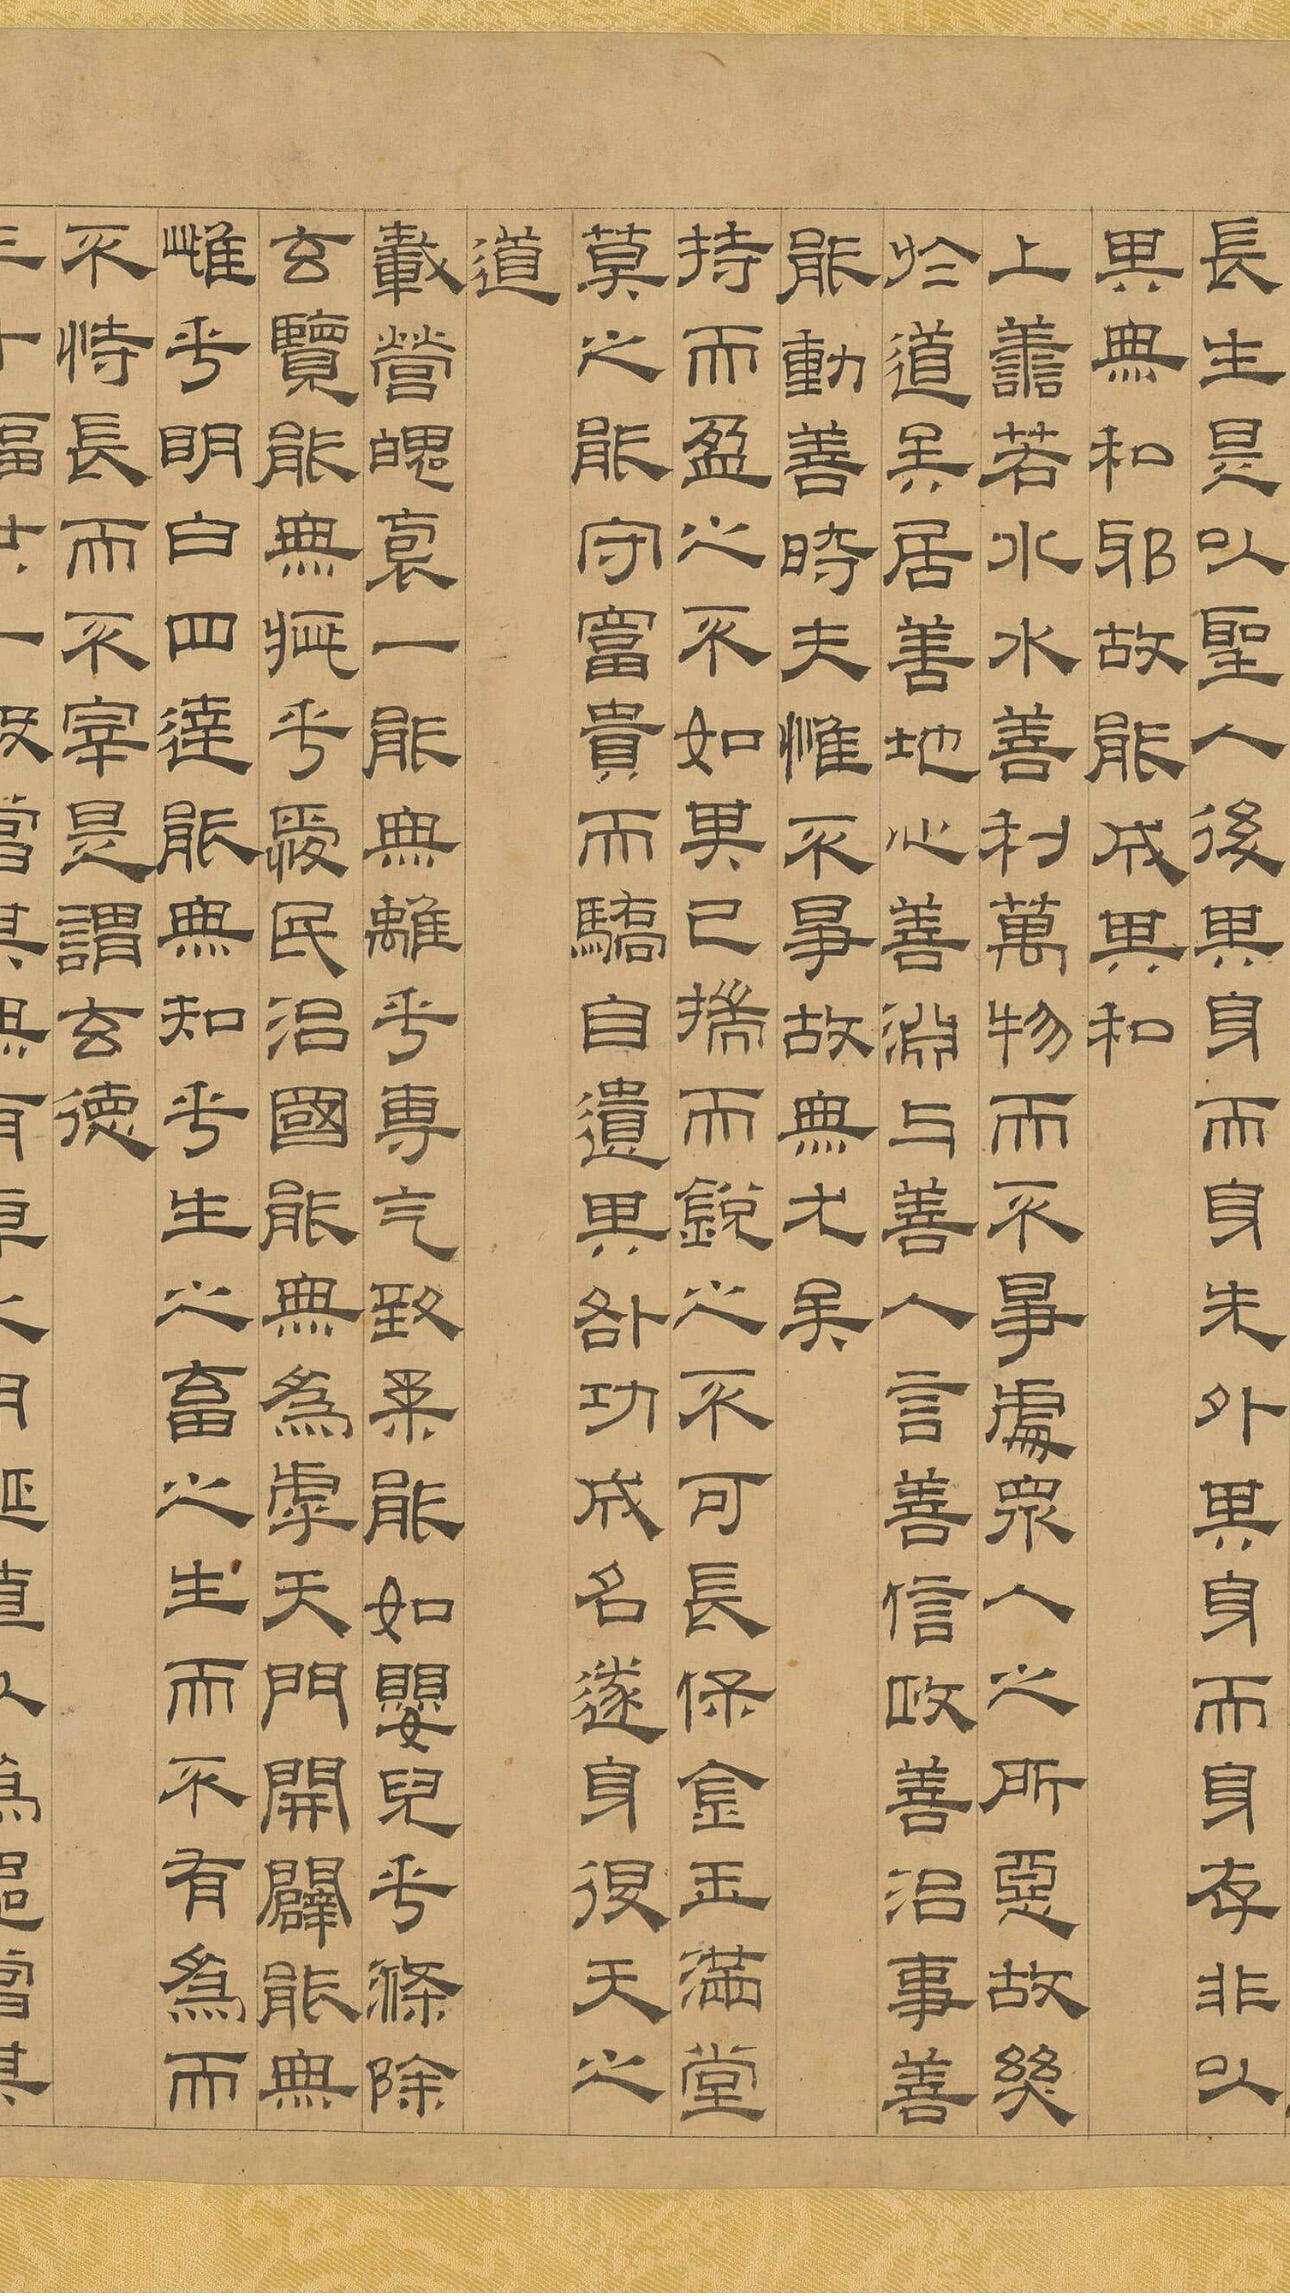 長生是以聖人後其身而身先外其身而身存非以
其無私邪故能成其私
上善若水水善利萬物而不爭處眾人之所惡故幾
於道矣居善地心善淵与善人言善信政善治事善
能動善時夫惟不爭故無尤矣
持而盈之不如其已揣而銳之不可長保金玉滿堂
莫之能守富貴而驕自遺其咎功成名遂身退天之
道
載營魄裒一能無離乎專气致柔能如嬰兒乎滌除
玄覽能無疵乎愛民治國能無為虖天門開闢能無
雌乎明白四達能無知乎生之畜之生而不有為而
不恃長而不宰是謂玄德